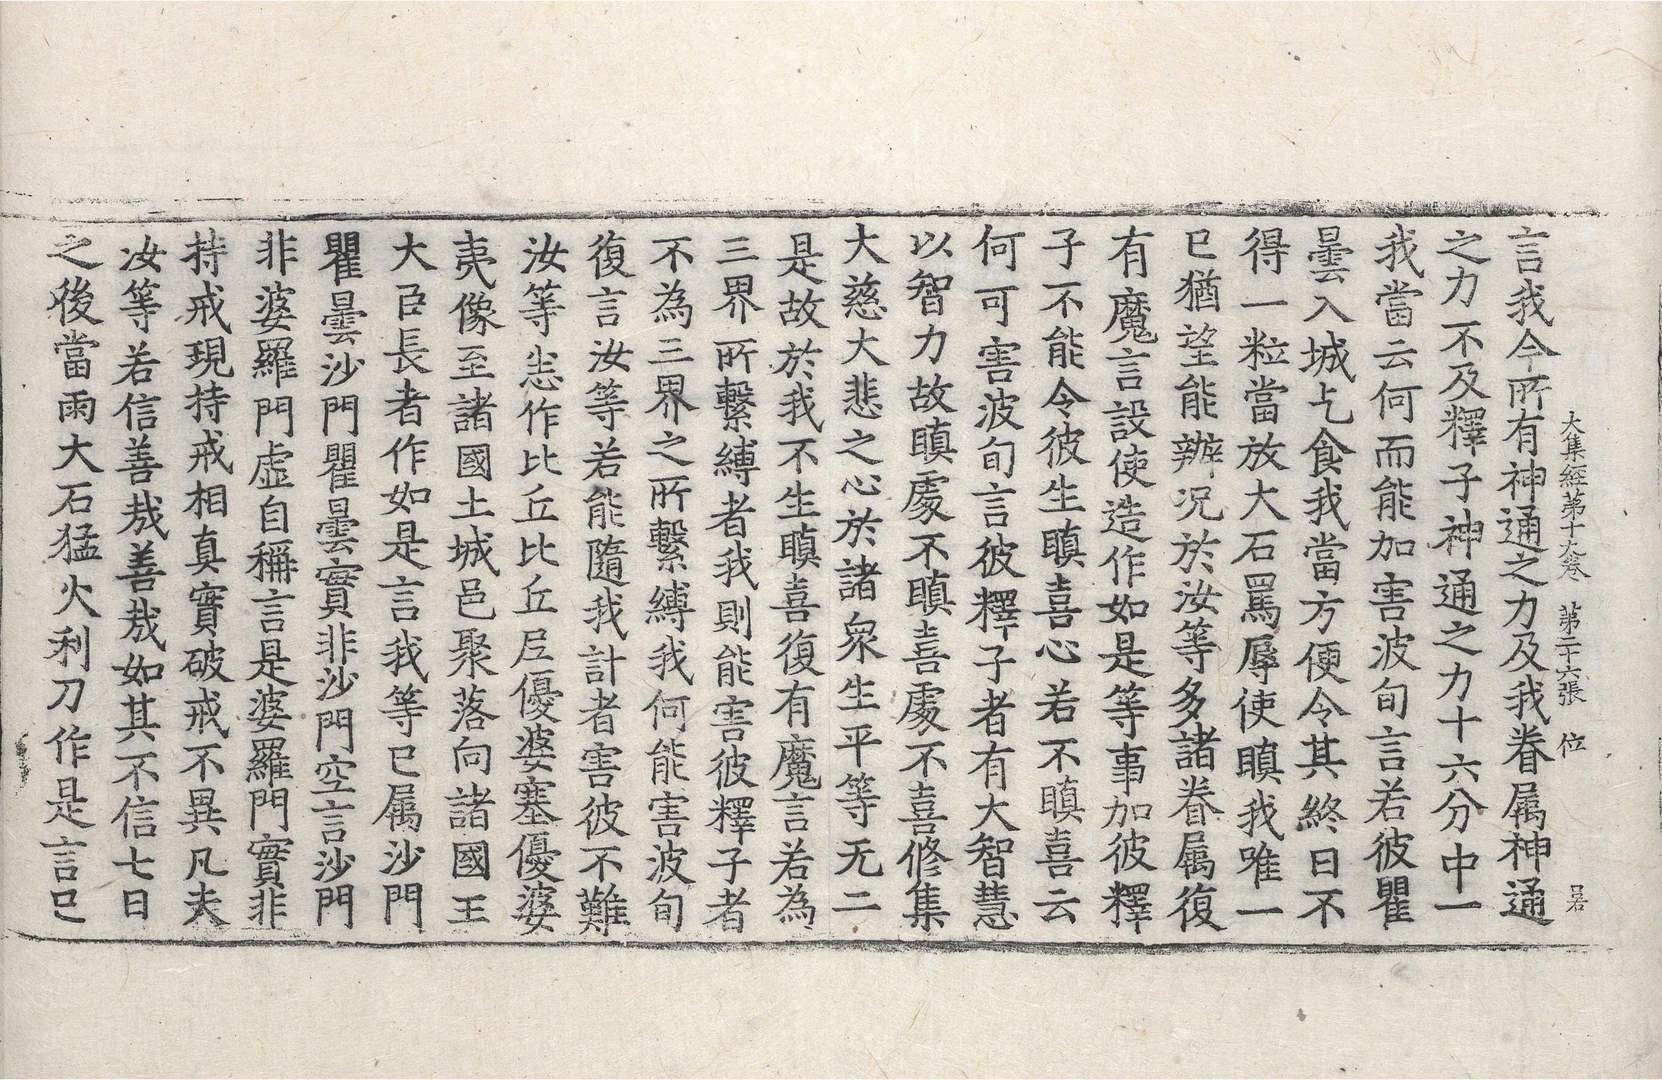 大集經第十九卷 第二十六張 位 呂
言我今所有神通之力及我眷属神通
之力不及釋子神通之力十六分中一
我當云何而能加害波旬言若彼瞿
曇入城乞食我當方便令其終日不
得一粒當放大石罵辱使瞋我唯一
已猶望能辦况於汝等多諸眷属復
有魔言設使造作如是等事加彼釋
子不能令彼生瞋喜心若不瞋喜云
何可害波旬言彼釋子者有大智慧
以智力故瞋處不瞋喜處不喜修集
大慈大悲之心於諸衆生平等无二
是故於我不生瞋喜復有魔言若為
三界所繫縛者我則能害彼釋子者
不為三界之所繫縛我何能害波旬
復言汝等若能隨我計者害彼不難
汝等恙作比丘比丘尼優婆塞優婆
夷像至諸國土城邑聚落向諸國王
大臣長者作如是言我等已属沙門
瞿曇沙門瞿曇實非沙門空言沙門
非婆羅門虛自稱言是婆羅門實非
持戒現持戒相真實破戒不異凡夫
汝等若信善㦲善㦲如其不信七日
之後當雨大石猛火利刀作是言已